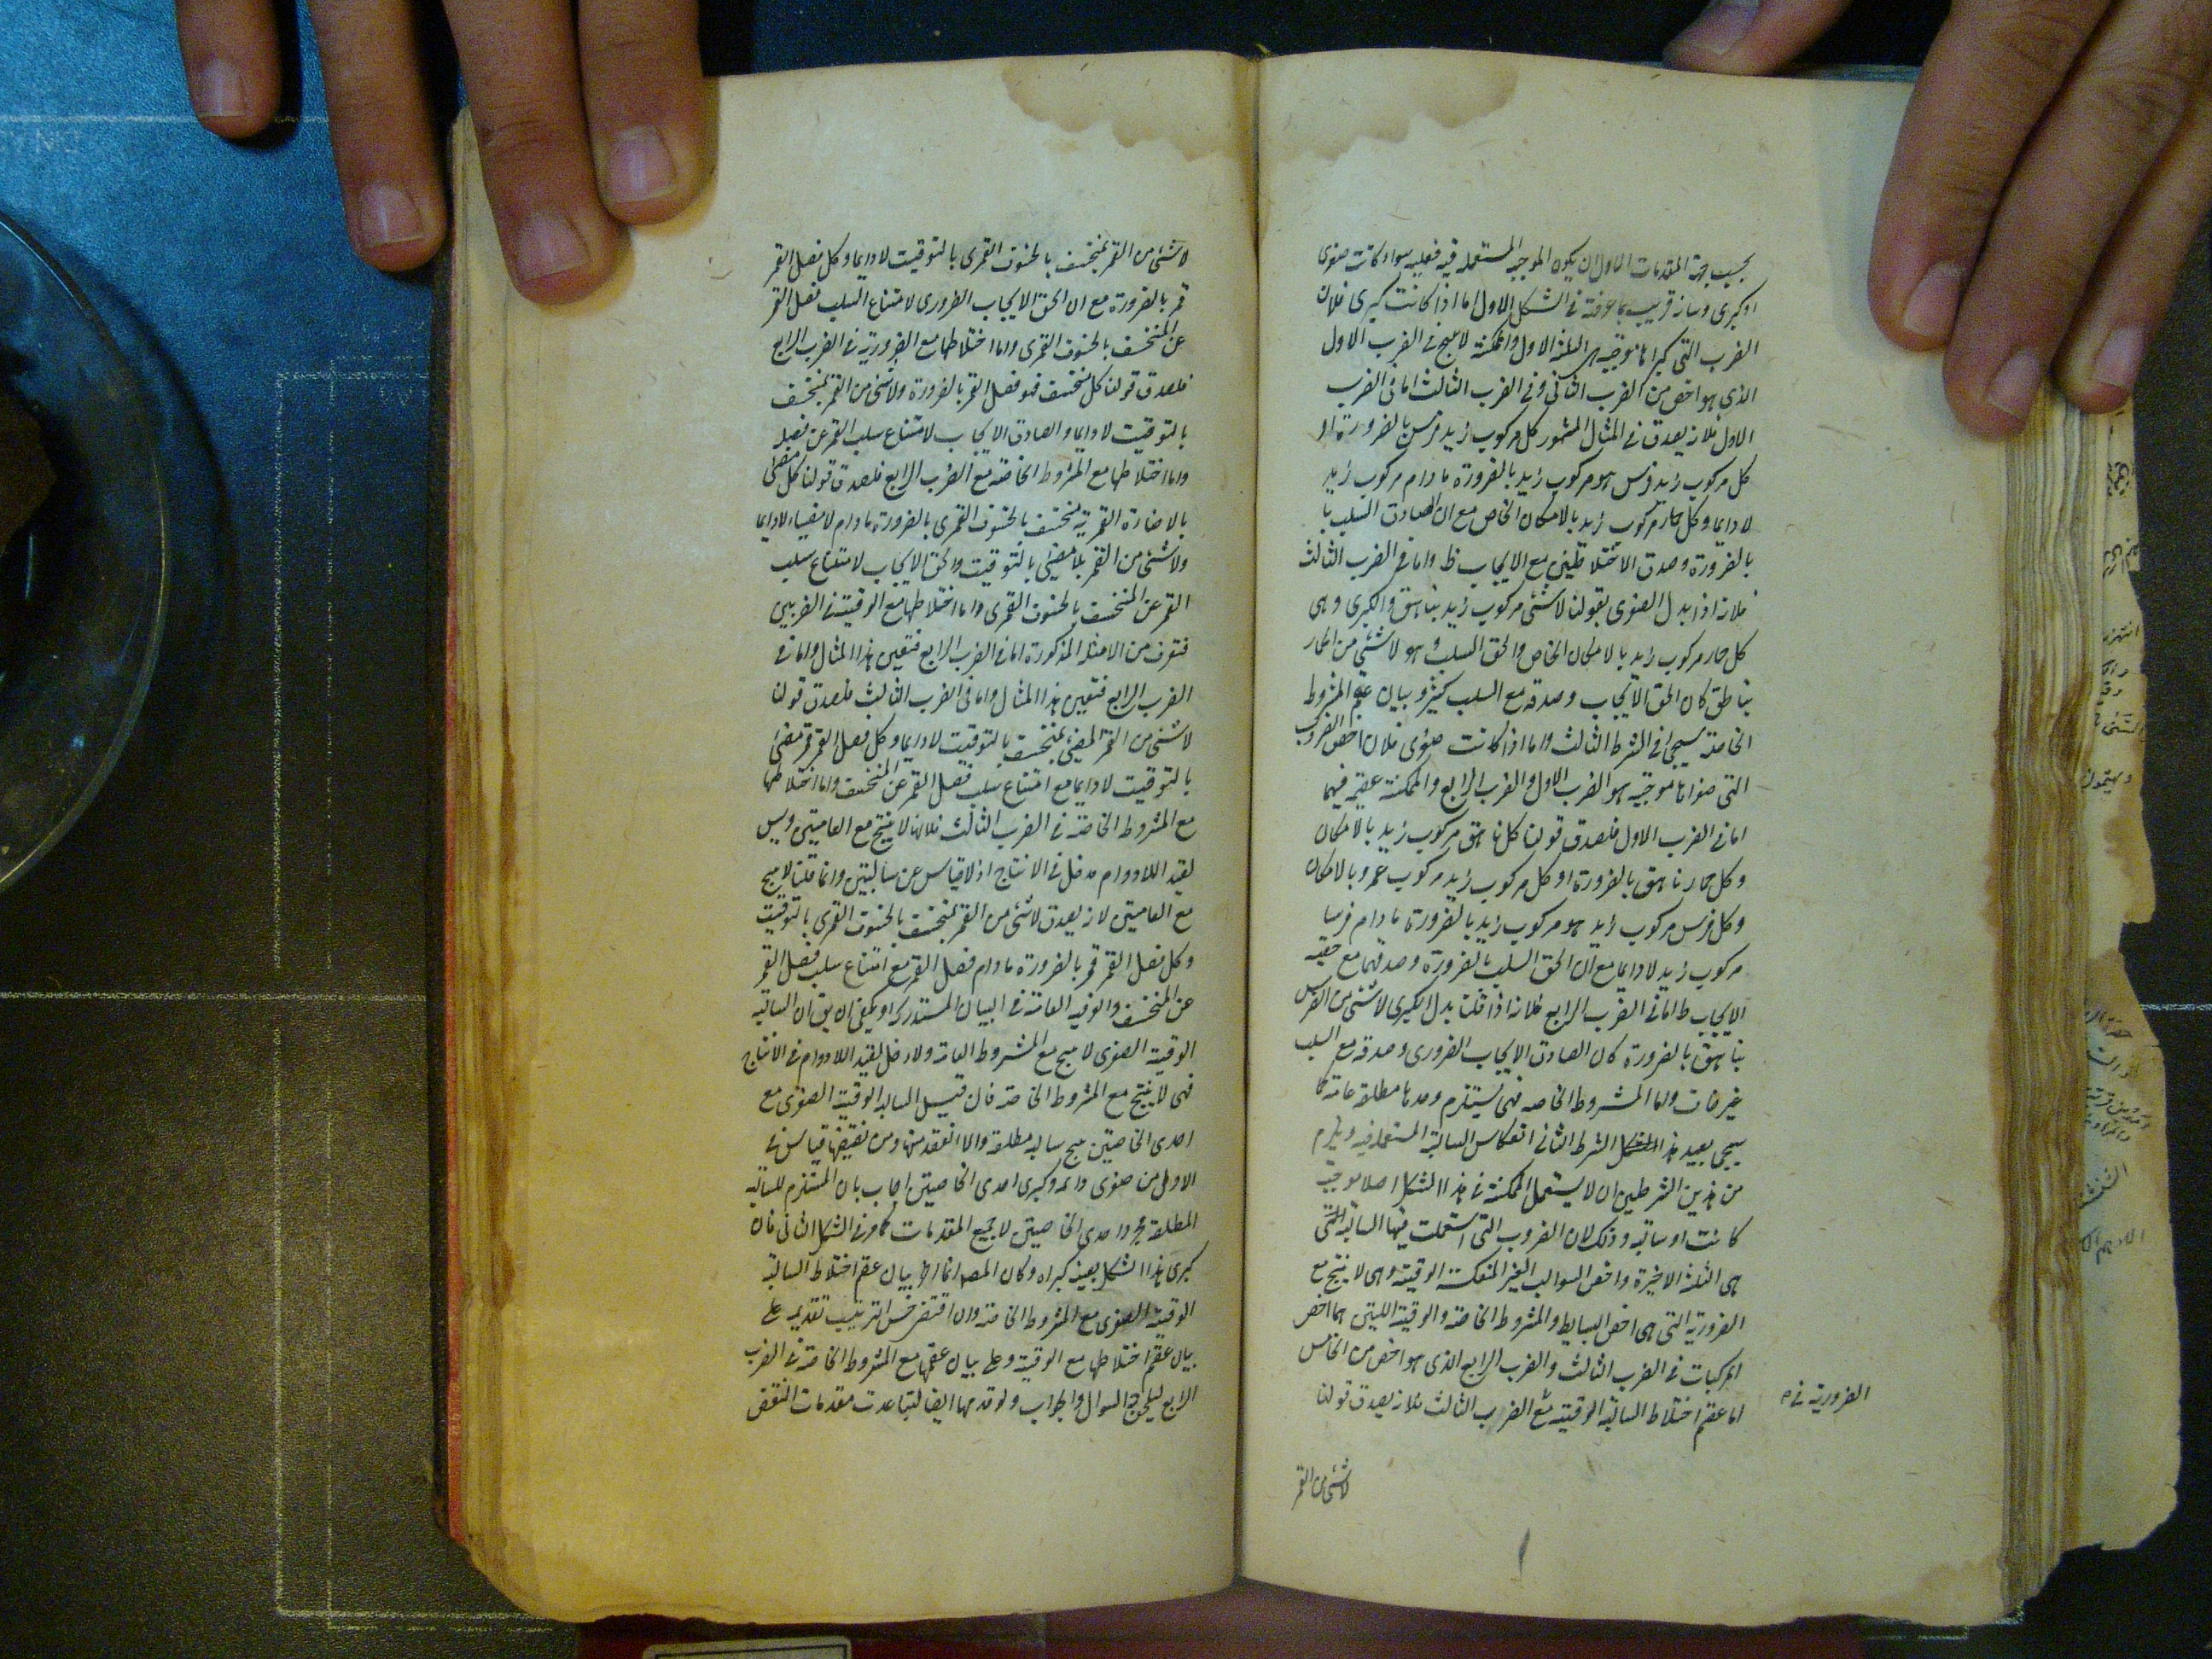 بحسب جهة المقدمات الاول ان يكون الموجبه المستعمله فيه فعليه سواء كانت صغرى
او كبرى وبيانه قريب مما عرفته في الشكل الاول اما اذا كانت كبرى فلان
الضرب التي كبراها موجبة هي الثلثة الاول والممكنة لا ينتج في الضرب الاول
الذي هو اخص من الضرب الثاني وفي الضرب الثالث اما في الضرب
الاول فلانه يصدق في المثال المشهور كل مركوب زيد فرس بالضرورة او
كل مركوب زيد فرس هو مركوب زيد بالضرورة ما دام مركوب زيد
لا دايما وكل حمار مركوب زيد بالامكان الخاص مع ان الصادق السلب
بالضرورة وصدق الاختلاطين مع الايجاب ظ واما في الضرب الثالث
فلانه اذا بدل الصغرى بقولنا لا شئ من مركوب زيد بناهق والكبرى وهى
كل حمار مركوب زيد بالامكان الخاص والحق السلب وهو لا شئ من الحمار
بناطق كان الحق الايجاب وصدقه مع السلب كثير وبيان عقم المشروط
الخاصة سيجئ في الشرط الثالث واما اذا كانت صغرى فلان اخص الضروب
التي صغراها موجبه هو الضرب الاول والضرب الرابع والممكنة عقيمة فيهما
اما في الضرب الاول فلصدق قولنا كل ناهق مركوب زيد بالامكان
وكل حمار ناهق بالضرورة او كل مركوب زيد مركوب عمرو بالامكان
وكل فرس مركوب زيد هو مركوب زيد بالضرورة ما دام فرسا
مركوب زيد لا دايما مع ان الحق السلب بالضرورة وصدقهما مع حقية
الايجاب ظ اما في الضرب الرابع فلانه اذا قلت بدل الكبرى لا شئ من الفرس
بناهق بالضرورة كان الصادق الايجاب الضرورى وصدقه مع السلب
غير خاف واما المشروط الخاصه فهى يستلزم وحدها مطلقة عامة كما
سيجئ بعيد هذا الشرط الثانى انعكاس السالبة المستعملة فيه ويلزم
من هذين الشرطين ان لا يستعمل الممكنة في هذا الشكل اصلا موجبة
كانت او سالبه وذلك لان الضروب التي استعملت فيها السالبة التي
هى الثلثة الاخيرة واخص السوالب الغير المنعكسة الوقتية وهى لا ينتج مع
الضرورية التي هى اخص البسايط والمشروط الخاصة والوقتية اللتين هما اخص
المركبات في الضرب الثالث والضرب الرابع الذى هو اخص من الخامس
اما عقم اختلاط السالبة الوقتية مع الضرب الثالث فلانه يصدق قولنا
الضرورية في
لا شئ من القمر
لا شئ من القمر بمنخسف بالخسوف القمرى بالتوقيت لا دايما وكل فصل القمر
قمر بالضرورة مع ان الحق الايجاب الضرورى لامتناع السلب فصل القمر
عن المنخسف بالخسوف القمرى واما اختلاطها مع الضرورية في الضرب الرابع
فلصدق قولنا كل منخسف فهو فصل القمر بالضرورة ولا شئ من القمر بمنخسف
بالتوقيت لا دايما والصادق الايجاب لامتناع سلب القمر عن فصله
واما اختلاطها مع المشروط الخاصة مع الضرب الرابع فلصدق قولنا كل مضئ
بالاضاءة القمرية منخسف بالخسوف القمرى بالضرورة ما دام لا مضيئا لا دايما
ولا شئ من القمر بلا مضئ بالتوقيت والحق الايجاب لامتناع سلب
القمر عن المنخسف بالخسوف القمرى واما اختلاطها مع الوقتية في الضربين
فتعرف من الامثلة المذكورة اما في الضرب الرابع فتعين هذا المثال واما في
الضرب الرابع فتعين هذا المثال واما في الضرب الثالث فلصدق قولنا
لا شئ من القمر المضئ بمنخسف بالتوقيت لا دايما وكل فصل القمر قمر مضئ
بالتوقيت لا دايما مع امتناع سلب فصل القمر عن المنخسف واما اختلاطها
مع المشروط الخاصة في الضرب الثالث فلانها لا ينتج مع العاميتين وليس
لقيد اللادوام مدخل في الانتاج اذ لا قياس عن سالبتين وانما قلنا لا ينتج
مع العاميتين لانه يصدق لا شئ من القمر بمنخسف بالخسوف القمرى بالتوقيت
وكل فصل القمر قمر بالضرورة ما دام فصل القمر مع امتناع سلب فصل القمر
عن المنخسف والعرفيه العامة في البيان المستدرك او يكفى ان يق ان السالبة
الوقتية الصغرى لا ينتج مع المشروط العامة ولا دخل لقيد اللادوام في الانتاج
فهى لا ينتج مع المشروط الخاصة فان قيل السالبة الوقتية الصغرى مع
احدى الخاصيتين ينتج سالبه مطلقة والا انعقد منها ومن نقيضها قياس في
الاول من صغرى دائمه وكبرى احدى الخاصيتين اجاب بان المستلزم للسالبة
المطلقة مجرد احدى الخاصيتين لا جميع المقدمات كما مر في الشكل الثانى فان
كبرى هذا الشكل بعينه كبراه وكان المص انما اخر بيان عقم اختلاط السالبة
الوقتية الصغرى مع المشروط الخاصة وان اقتضى حسن الترتيب تقديمه على
بيان عقم اختلاطها مع الوقتية وعلى بيان عقمها مع المشروط الخاصة في الضرب
الرابع ليلحق السوال والجواب ولو قدمها ايضا لتباعدت مقدمات النقض